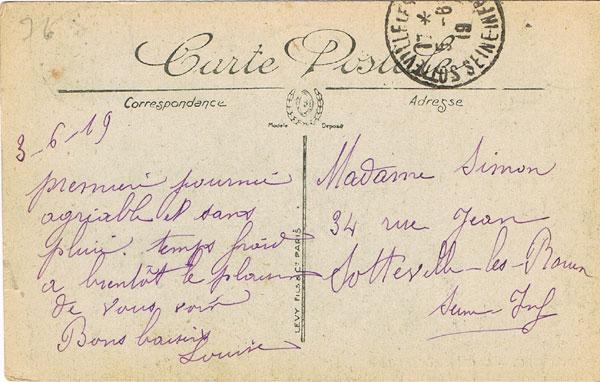 96
SOTTEVILLE-LES-
17 * 5-6 19
SEINE-INFRE
Carte Postale
Correspondance
Adresse
Modèle Déposé
3-6-19
première journée
agréable et sans
pluie. temps froid
a bientôt le plaisir
de vous voir
Bons baisers
Louise
LEVY FILS & Cie PARIS
Madame Simon
34 rue Jean
Sotteville-les-Rouen
Seine-Inf